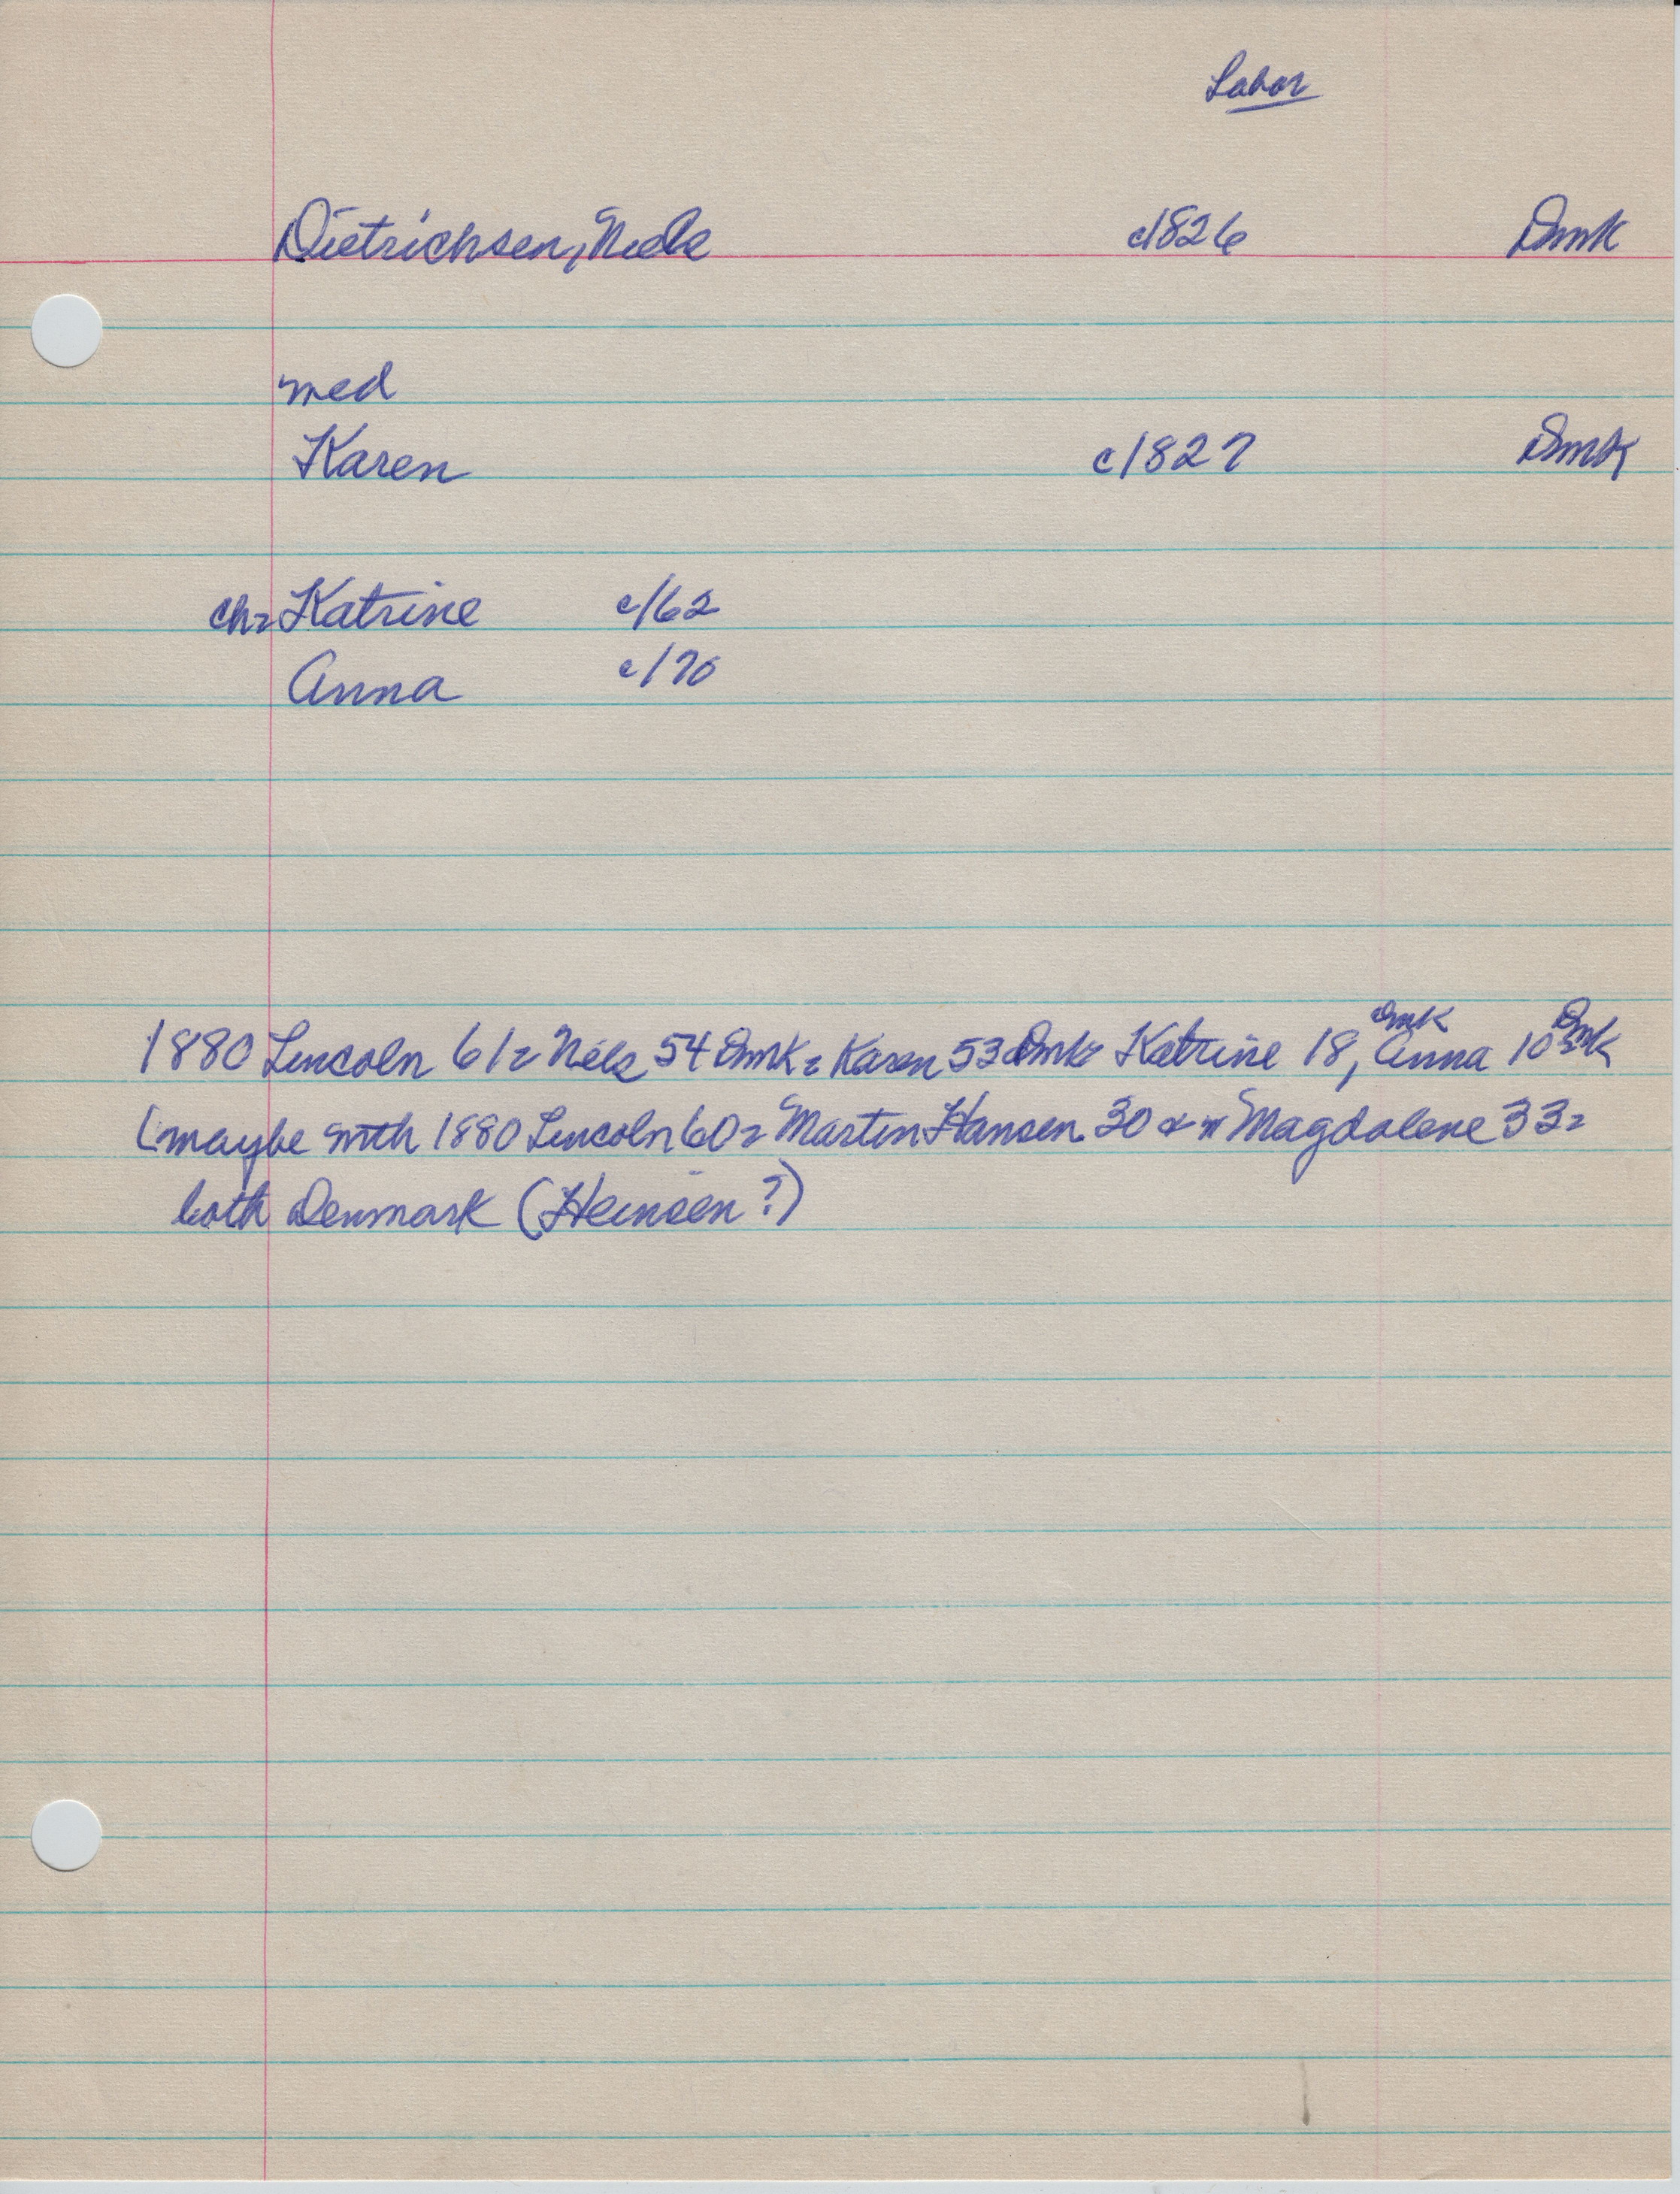 Labor
Dietrichsen, Niels c1826 Dmk
med
Karen c1827 Dmk
ch= Katrine c/62
Anna c/70
1880 Lincoln 61= Niels 54 Dmk= Karen 53 Dmk= Katrine 18, Dmk Anna 10 Dmk
(maybe with 1880 Lincoln 60= Martin Hansen 30 & w Magdalene 33=
both Denmark (Heinsen?)